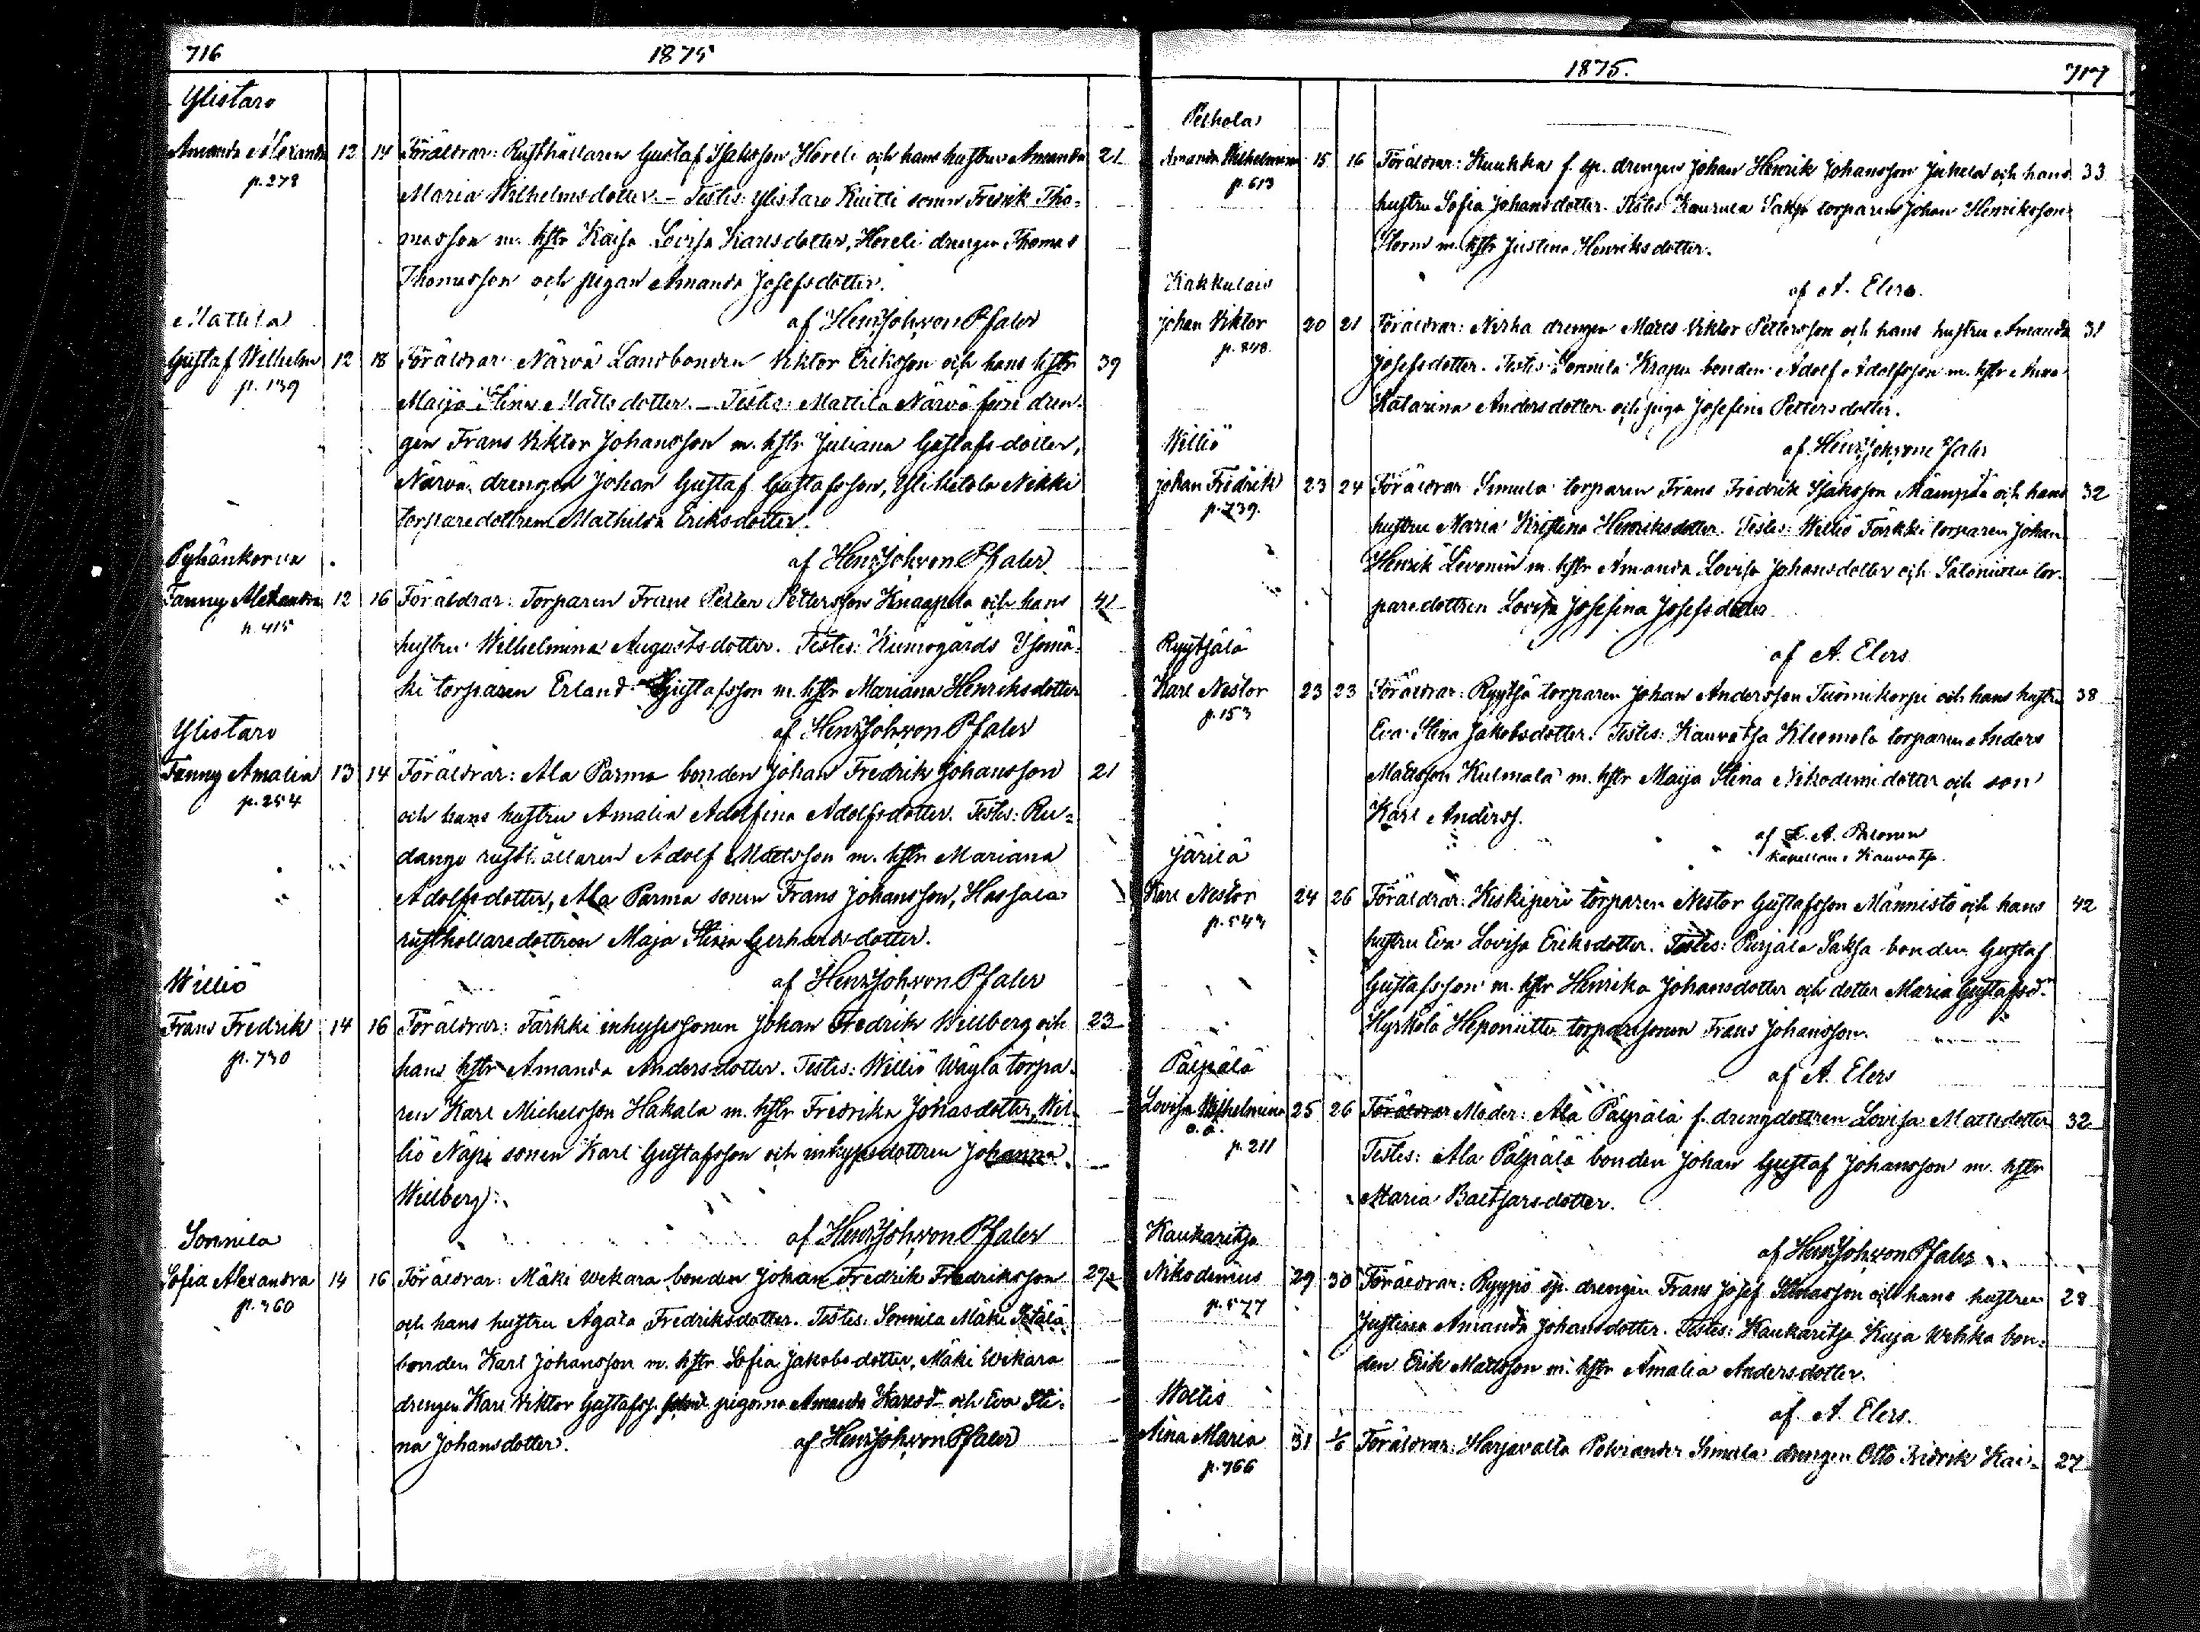 716
1875
Ylistaro
Amanda Alexandra 12 14 Föräldrar: Rusthållaren Gustaf Isaksson Horeli och hans hustru Amanda 21
p. 278
Maria Wilhelmsdotter. – Testes: Ylistaro Knitti sonen Fredrik Tho-
masson m. hstr Kaisa Lovisa Karlsdotter, Horeli drengen Thomas
Thomasson och pigan Amanda Josefsdotter.
af Henr Joh von Pfaler
Mattila
Gustaf Wilhelm 12 18 Föräldrar: Närvä Landbonden Viktor Eriksson och hans hstr 39
p. 139
Maija Stina Mattsdotter. – Testes: Mattila Närvä förre dren-
gen Frans Viktor Johansson m. hstr Juliana Gustafsdotter,
Närvä drengen Johan Gustaf Gustafsson, Ylikitola Nikki
torparedottren Mathilda Eriksdotter.
af Henr Joh von Pfaler
Pyhänkorva
Fanny Alexandra 12 16 Föräldrar: Torparen Frans Petter Pettersson Knaapola och hans 41
p. 415
hustru Wilhelmina Augustsdotter. Testes: Kumogårds Isomä-
ki torparen Erland Gustafsson m. hstr Mariana Henriksdotter
af Henr Joh von Pfaler
Ylistaro
Fanny Amalia 13 14 Föräldrar: Ala Parma bonden Johan Fredrik Johansson 21
p. 254
och hans hustru Amalia Adolfina Adolfsdotter. Testes: Ru-
danga rusthållaren Adolf Mattsson m. hstr Mariana
Adolfsdotter, Ala Parma sonen Frans Johansson, Hassala
rusthollaredottren Maja Stina Gerhardsdotter.
af Henr Joh von Pfaler
Williö
Frans Fredrik 14 16 Föräldrar: Tärkki inhysessonen Johan Fredrik Willberg och 23
p. 730
hans hstr Amanda Andersdotter. Testes: Williö Wäylä torpa-
ren Karl Michelsson Hakala m. hstr Fredrika Johasdotter, Wil-
liö Näpi sonen Karl Gustafsson och inhysesdottren Johanna
Willberg.
af Henr Joh von Pfaler
Sonnila
Sofia Alexandra 14 16 Föräldrar: Mäki Wekara bonden Johan Fredrik Fredriksson 29
p. 360
och hans hustru Agata Fredriksdotter. Testes: Sonnila Mäki Pitälä
bonden Karl Johansson m. hstr Sofia Jakobsdotter, Mäki Wekara
drengen Karl Viktor Gustafss. pigorna Amanda Karlsd. och Eva Sti-
na Johansdotter.
af Henr Joh von Pfaler
1875.
717
Peihola
Amanda Wilhelmina 15 16 Föräldrar: Kuukka f. sp. drengen Johan Henrik Johansson Juhela och hans 33
p. 613
hustru Sofia Johansdotter. Testes Kaurula Saksa torparen Johan Henriksson
Storm m. hstr Justina Henriksdotter.
af A. Elers.
Kakkulais
Johan Viktor 20 21 Föräldrar: Nirha drengen Matts Viktor Pettersson och hans hustru Amanda 31
p. 848
Josefsdotter. Testes: Sonnila Krapu bonden Adolf Adolfsson m. hstr Anna
Katarina Andersdotter och piga Josefina Pettersdotter.
af Henr Joh von Pfaler
Williö
Johan Fredrik 23 24 Föräldrar Simula torparen Frans Fredrik Isaksson Mämpää och hans 32
p. 739.
hustru Maria Kristina Henriksdotter. Testes: Williö Tärkki torparen Johan
Henrik Levonen m. hstr Amanda Lovisa Johansdotter och Salonitten tor-
paredottren Lovisa Josefina Josefsdotter
af A. Elers
Ryytsälä
Karl Nestor 23 23 Föräldrar: Ryytsä torparen Johan Andersson Tuomikorpi och hans hustru 38
p. 153
Eva Stina Jakobsdotter. Testes: Kauvatsa Kleemola torparen Anders
Mattsson Kulmala m. hstr Maija Stina Nikodemidotter och son
Karl Anderss.
af A. Palonen
Kapellan i Kauvatsa.
Järilä
Karl Nestor 24 26 Föräldrar: Kiskiperi torparen Nestor Gustafsson Männistö och hans 42
p. 543
hustru Eva Lovisa Eriksdotter. Testes: Purjala Saksa bonden Gustaf
Gustafsson m. hstr Henrika Johansdotter och dotter Maria Gustafsd.
Hyrkölä Heponiitty torparesonen Frans Johansson.
af A. Elers
Pälpälä
Lovisa Wilhelmina 25 26 Föräldrar Moder: Ala Pälpälä f. drengdottren Lovisa Mattsdotter 32
o. ä.
p. 211
Testes: Ala Pälpälä bonden Johan Gustaf Johansson m. hstr
Maria Baltsarsdotter.
af Henr Joh von Pfaler
Kaukaritsa
Nikodemus 29 30 Föräldrar: Ryyppö sp. drengen Frans Josef Thomasson och hans hustru 28
p. 577
Justina Amanda Johansdotter. Testes: Kaukaritsa Kuja Uhka bon-
den Erik Mattsson m. hstr Amalia Andersdotter.
af A. Elers.
Woitis
Aina Maria 31 1/6 Föräldrar: Harjavalta Pohviander Simula drengen Otto Fredrik Kai- 27
p. 766